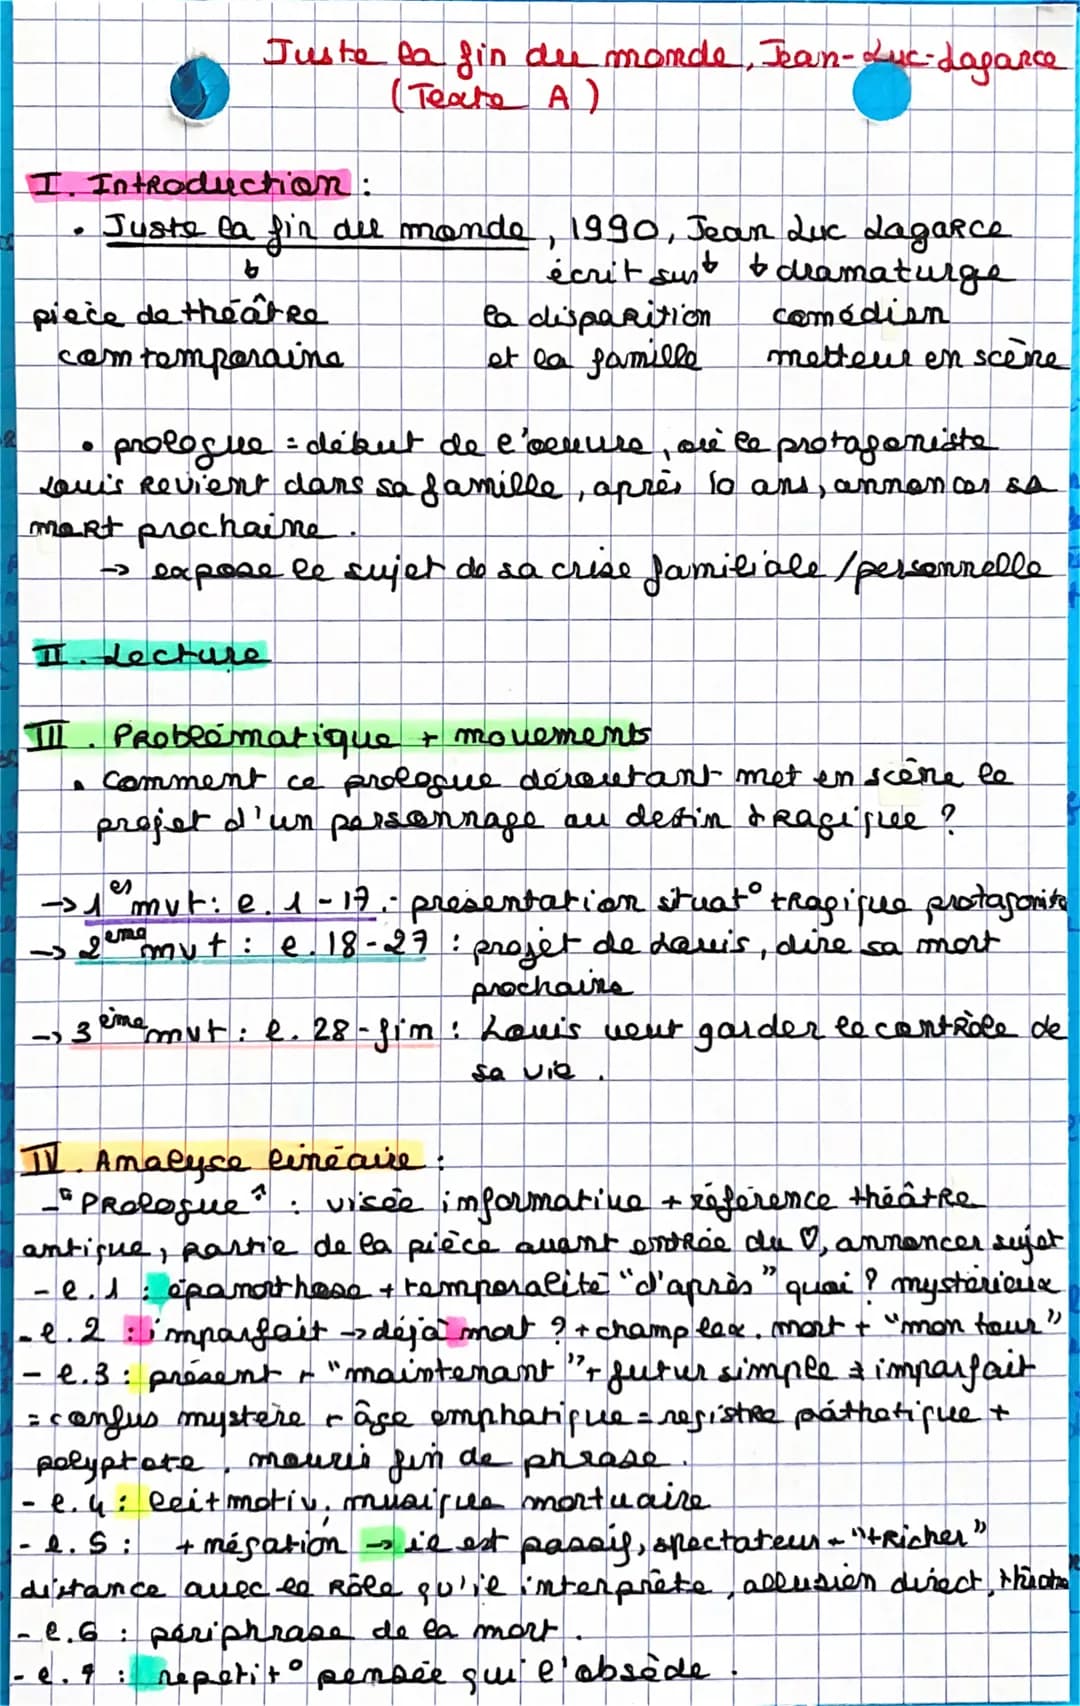 Juste la fin du monde, Jean-Luc-Lagarce
(Texte A)
I. Introduction :
• Juste la fin du monde, 1990, Jean Luc Lagarce
écrit sur dramaturge
pièce de théâtre la disparition comédien
contemporaine et la famille metteur en scène
• prologue = début de l'oeuvre, où le protagoniste
Louis revient dans sa famille, après 10 ans, annoncer sa
mort prochaine.
→ expose le sujet de sa crise familiale / personnelle
II. Lecture
III. Problématique + mouvements
• Comment ce prologue déroutant met en scène le
projet d'un personnage au destin tragique ?
→ 1er mvt : l. 1-17 : présentation situat° tragique protagoniste
→ 2ème mvt : l. 18-27 : projet de Louis, dire sa mort
prochaine
→ 3ème mvt : l. 28-fin : Louis veut garder le contrôle de
sa vie.
IV. Analyse linéaire :
- "Prologue" : visée informative + référence théâtre
antique, partie de la pièce avant entrée du ♡, annoncer sujet
- l.1 : épanorthose + temporalité "d'après" quoi ? mystérieux
- l.2 : imparfait → déjà mort ? + champ lex. mort + "mon tour"
- l.3 : présent + "maintenant" + futur simple ≠ imparfait
= confus mystère + âge emphatique = registre pathétique +
polyptote, mourir fin de phrase.
- l.4 : leitmotiv, musique mortuaire
- l.5 : + négation → il est passif, spectateur + "tricher"
distance avec le rôle qu'il interprète, allusion direct, théatre
- l.6 : périphrase de la mort.
- l.9 : repetit° pensée qui l'obsède.